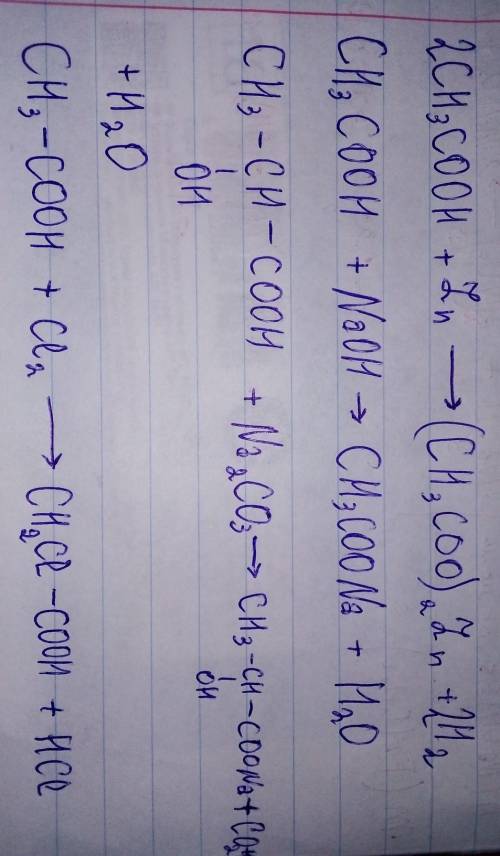 2CH₃COOH + Zn ⟶ (CH₃COO)₂Zn + H₂
CH₃COOH + NaOH → CH₃COONa + H₂O
CH₃ – CH – COOH + Na₂CO₃ → CH₃ – CH – COONa + CO₂+
OH OH
+ H₂O
CH₃ – COOH + Cl₂ ⟶ CH₂Cl – COOH + HCl